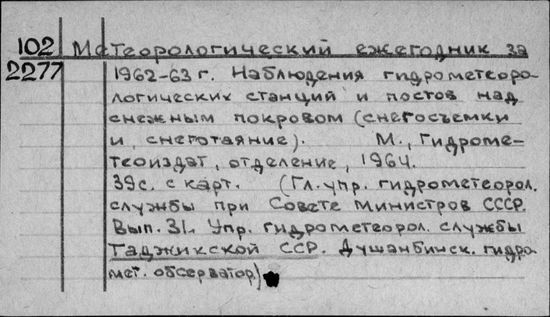 102 Метеорологический ежегодник за
2277 1962-63 г. Наблюдения гидрометеоро-
логических станций и постов над
снежным покровом (снегосъемки
и снеготаяние). М., Гидроме-
теоиздат, отделение, 1964.
39с. с карт. (Гл. упр. гидрометеорол.
службы при Совете Министров СССР.
Вып. 31. Упр. гидрометеорол. службы
Таджикской ССР. Душанбинск. гидро-
мет. обсерватор.)